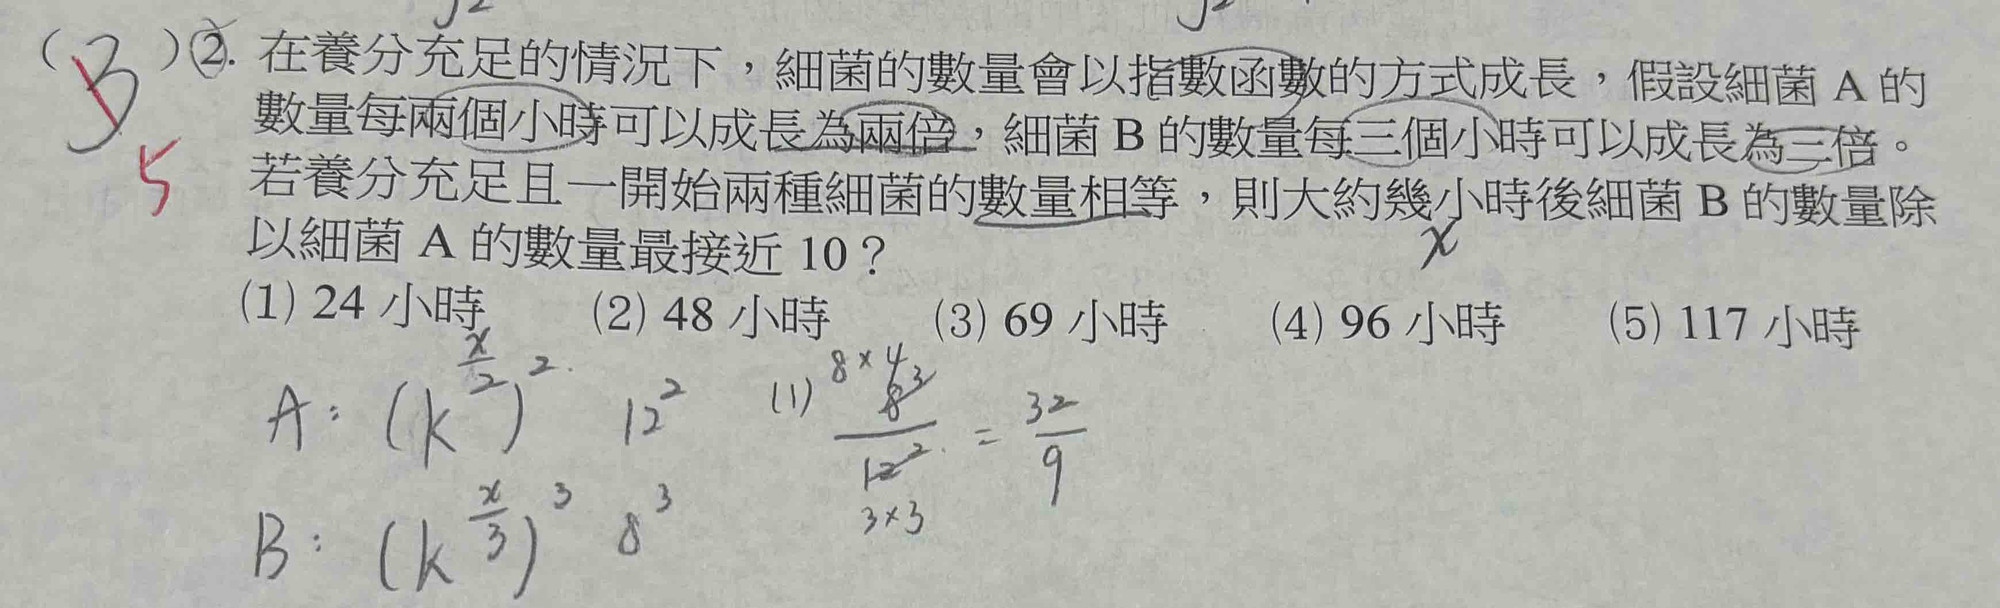 ( B ) 2. 在養分充足的情況下，細菌的數量會以指數函數的方式成長，假設細菌 A 的
數量每兩個小時可以成長為兩倍，細菌 B 的數量每三個小時可以成長為三倍。
5
若養分充足且一開始兩種細菌的數量相等，則大約幾小時後細菌 B 的數量除
以細菌 A 的數量最接近 10？
x
(1) 24 小時 (2) 48 小時 (3) 69 小時 (4) 96 小時 (5) 117 小時
A: (k^{x/2})^2 12^2 (1) 8×4 8^3 / 12^2 3×3 = 32/9
B: (k^{x/3})^3 8^3